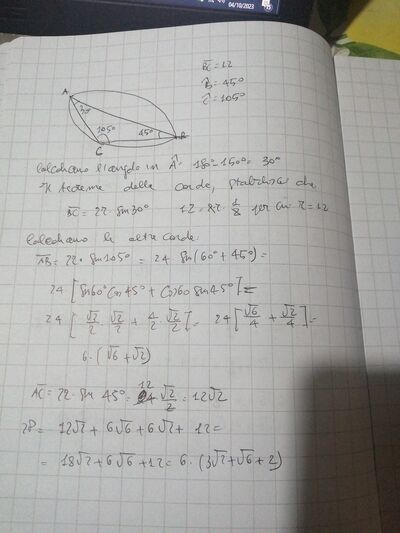 04/10/2023
BC = 12
B̂ = 45°
Ĉ = 105°
A
30°
105°
45°
B
C
Calcoliamo l'angolo in Â = 180° - 150° = 30°
Il teorema delle corde, stabilisce che
BC = 2r · sen 30° 12 = 2r · 1/2 per cui r = 12
Calcoliamo le altre corde
AB = 2r · sen 105° = 24 · sen (60° + 45°) =
24 [sen 60° cos 45° + cos 60 sen 45°] =
24 [√2/2 · √2/2 + 1/2 · √2/2] = 24 [√6/4 + √2/4] =
6 · (√6 + √2)
AC = 2r · sen 45° = 12 24 · √2/2 = 12√2
2P = 12√2 + 6√6 + 6√2 + 12 =
= 18√2 + 6√6 + 12 = 6 · (3√2 + √6 + 2)